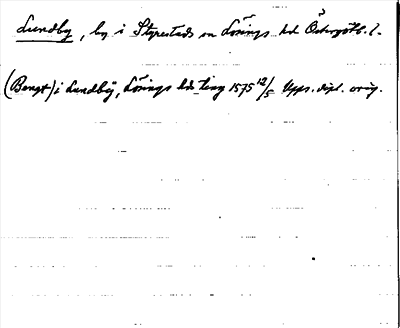 Lundby, by i Styrestads sn Lösings hd Östergötl. l.
(Bengt) i Lundbÿ, Lösings hds ting 1575 12/5 Upps. dipl. orig.